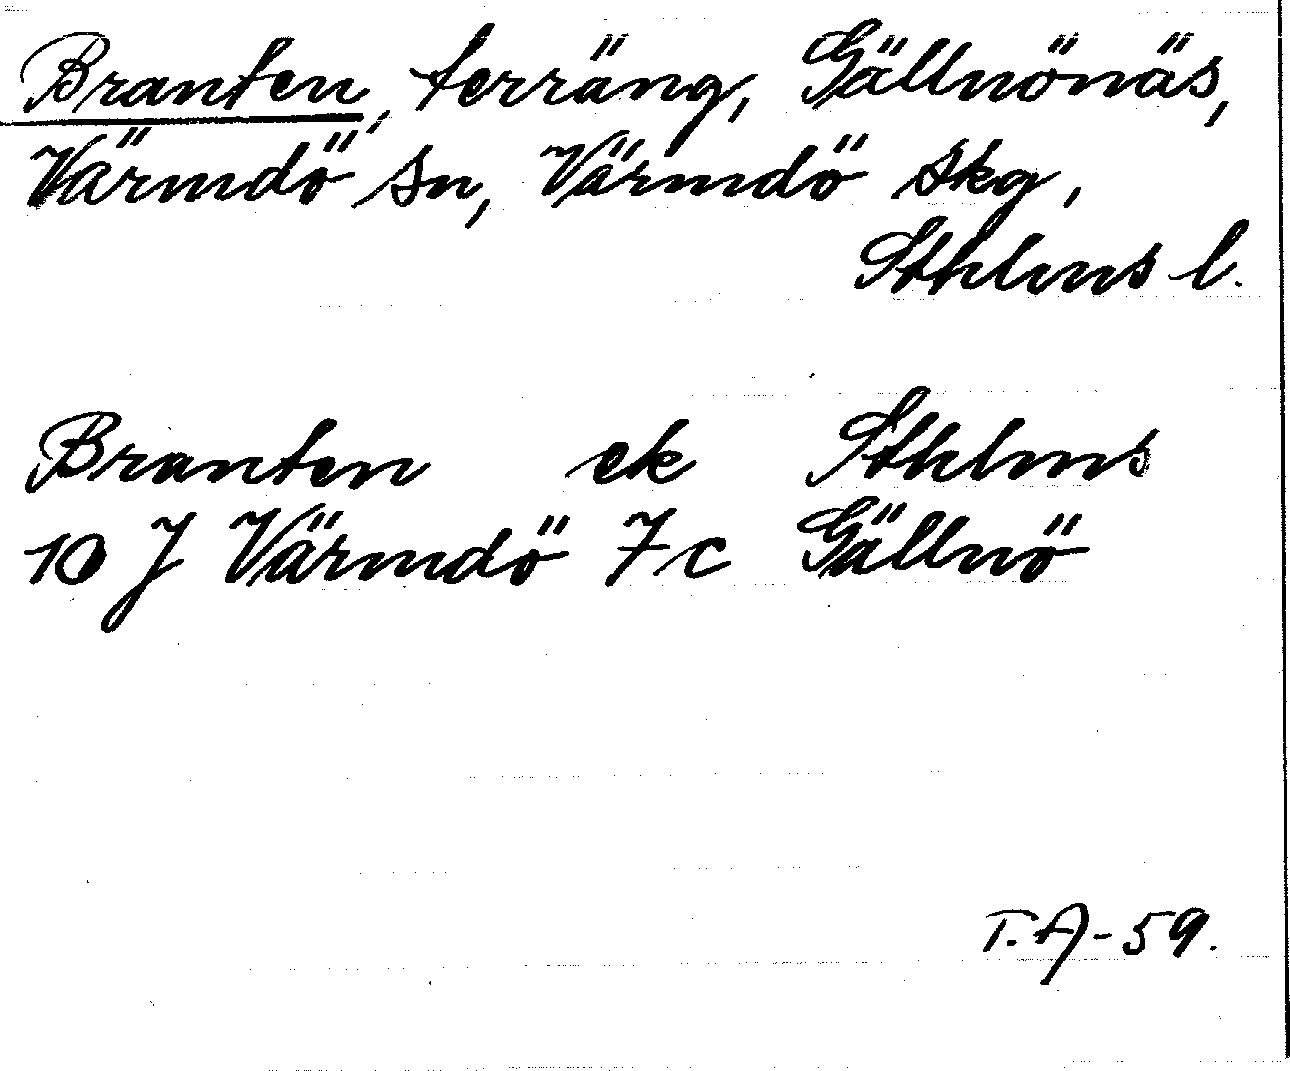 Branten, terräng, Gällnönäs,
Värmdö sn, Värmdö skg,
Sthlms l.
Branten ek Sthlms
10 J Värmdö 7c Gällnö
T.A-59.